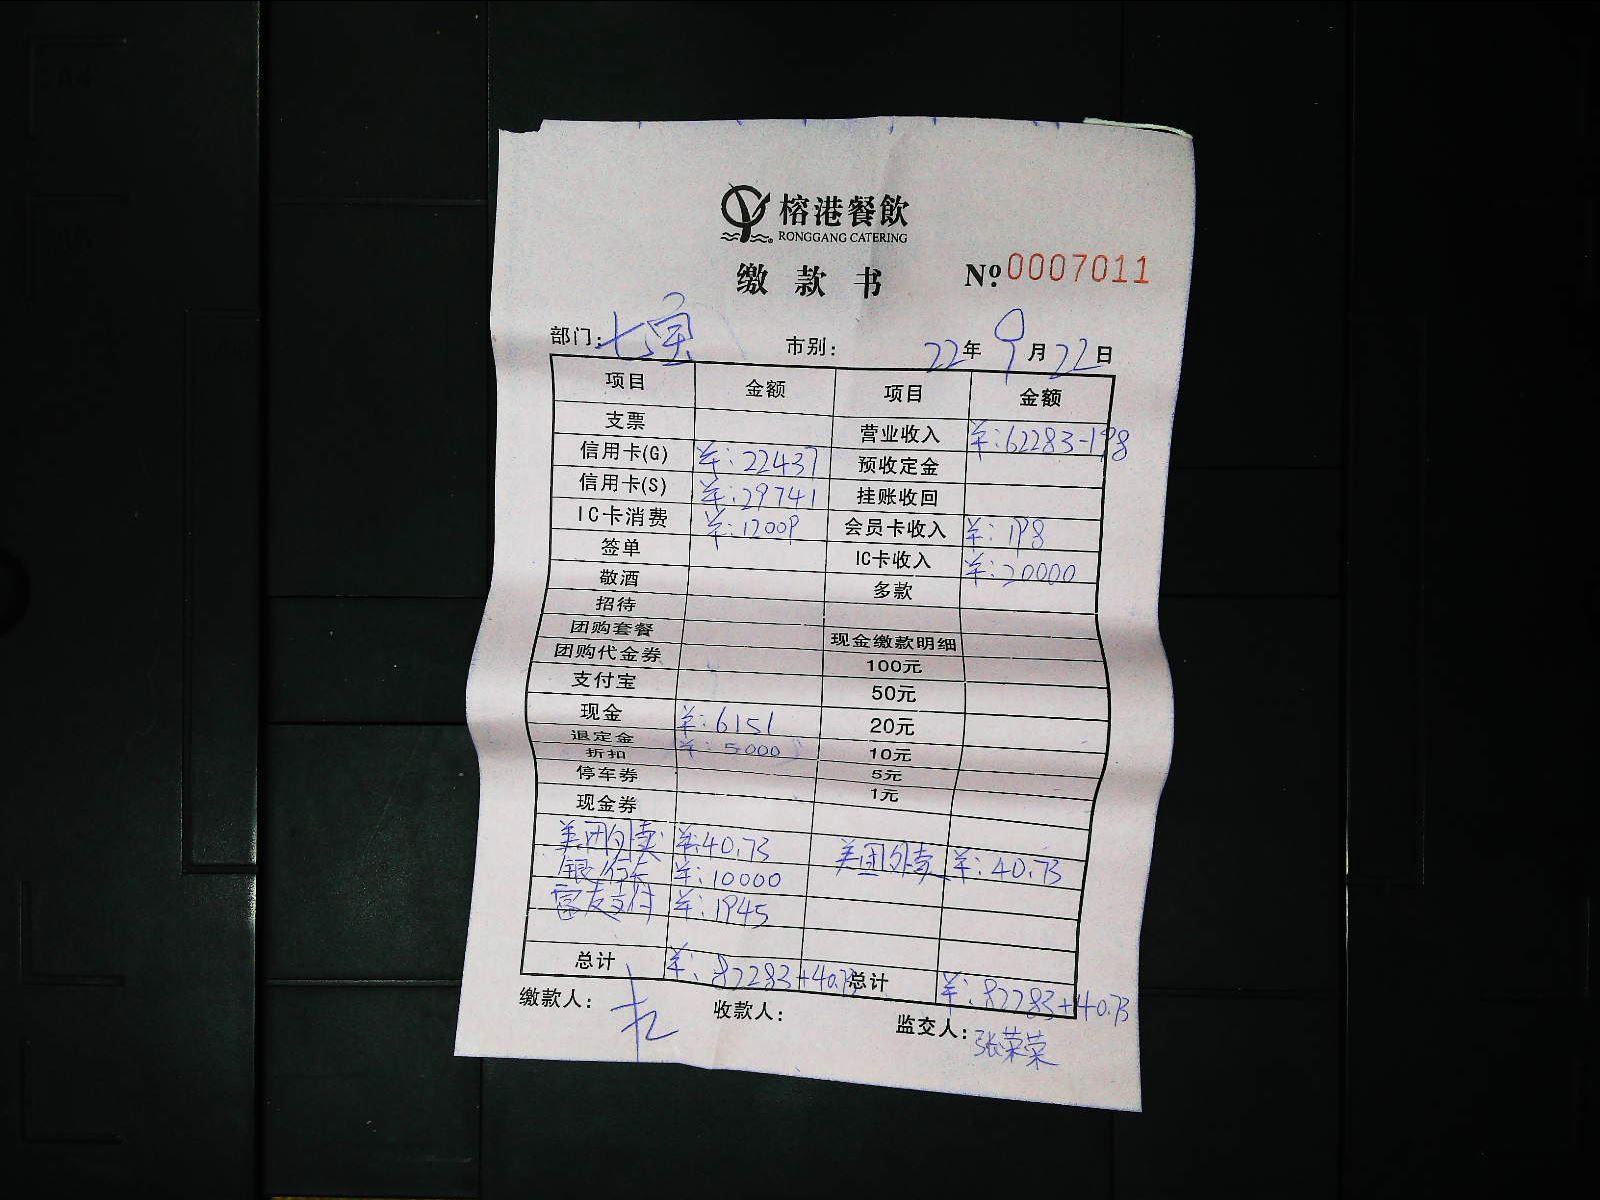 榕港餐飲
RONGGANG CATERING
缴款书 Nº.0007011
部门: 七宝 市别: 22年9月22日
项目 金额 项目 金额
支票 营业收入 羊:62283-198
信用卡(G) 羊:22437 预收定金
信用卡(S) 羊:29741 挂账收回
IC卡消费 羊:12009 会员卡收入 羊:198
签单 IC卡收入 羊:20000
敬酒 多款
招待
团购套餐 现金缴款明细
团购代金券 100元
支付宝 50元
现金 羊:6151 20元
退定金 羊:5000 10元
折扣 5元
停车券 1元
现金券
美团外卖 羊:40.73 美团外卖 羊:40.73
银行卡 羊:10000
富友支付 羊:1945
总计 羊:87283+40.73 总计 羊:87283+40.73
缴款人: 收款人: 监交人: 张荣荣